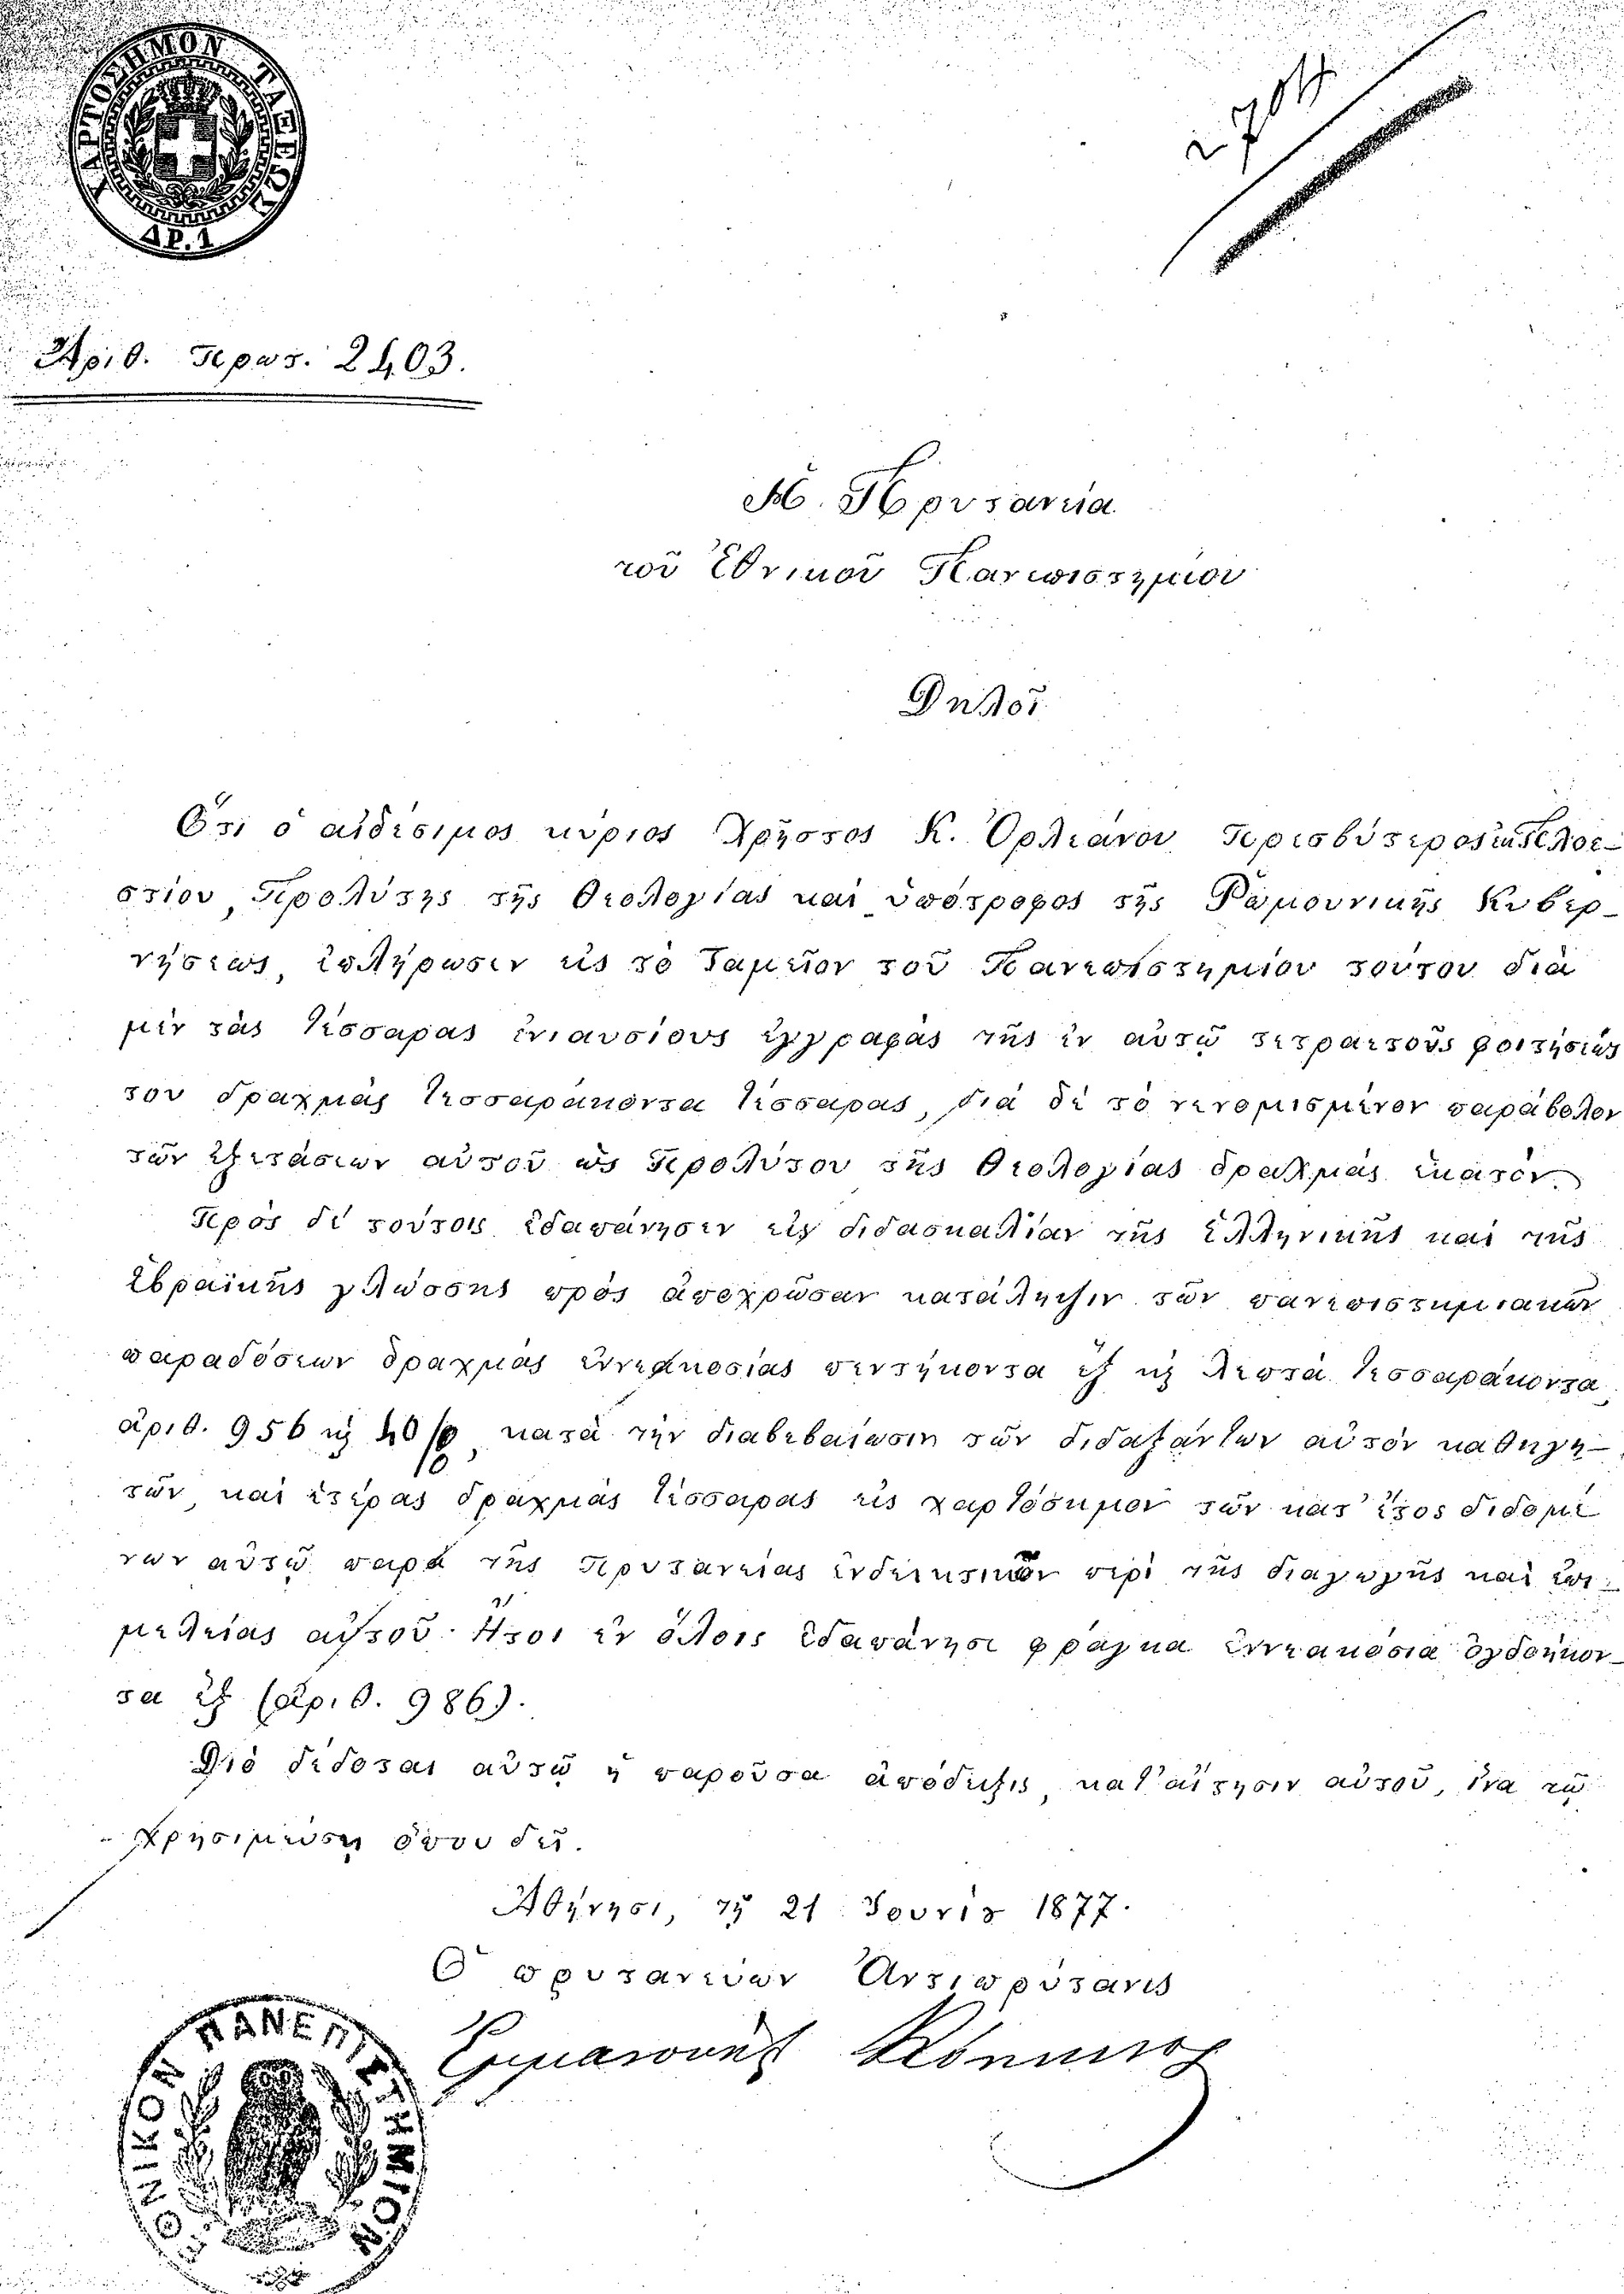 ΧΑΡΤΟΣΗΜΟΝ ΤΑΞΕΩΣ
ΔΡ.1
Ἀριθ. πρωτ. 2403.
Ἡ Πρυτανεία
τοῦ Ἐθνικοῦ Πανεπιστημίου
Δηλοῖ
Ὅτι ὁ αἰδέσιμος κύριος Χρῆστος Κ. Ὀρλεάνου πρεσβύτερος ἐκ
στίου, Προλύτης τῆς Θεολογίας καὶ ὑπότροφος τῆς Ρωμουνικῆς Κυβερ-
νήσεως, ἐπλήρωσεν εἰς τὸ Ταμεῖον τοῦ Πανεπιστημίου τούτου διὰ
μὲν τὰς τέσσαρας ἐνιαυσίους ἐγγραφὰς τῆς ἐν αὐτῷ τετραετοῦς φοιτήσεώς
του δραχμὰς τεσσαράκοντα τέσσαρας, διὰ δὲ τὸ νενομισμένον παράβολον
τῶν ἐξετάσεων αὐτοῦ ὡς Προλύτου τῆς Θεολογίας δραχμὰς ἑκατόν.
Πρὸς δὲ τούτοις ἐδαπάνησεν εἰς διδασκαλίαν τῆς Ἑλληνικῆς καὶ τῆς
Ἑβραϊκῆς γλώσσης πρὸς ἀποχρῶσαν κατάληψιν τῶν πανεπιστημιακῶν
παραδόσεων δραχμὰς ἐννεακοσίας πεντήκοντα ἓξ κὶ λεπτὰ τεσσαράκοντα,
ἀριθ. 956 κὶ 40/%, κατὰ τὴν διαβεβαίωσιν τῶν διδαξάντων αὐτὸν καθηγη-
τῶν, καὶ ἑτέρας δραχμὰς τέσσαρας εἰς χαρτόσημον τῶν κατ' ἔτος διδομέ
νων αὐτῷ παρὰ τῆς Πρυτανείας ἐνδεικτικῶν περὶ τῆς διαγωγῆς καὶ ἐπι-
μελείας αὐτοῦ. Ἤτοι ἐν ὅλοις ἐδαπάνησε φράγκα ἐννεακόσια ὀγδοήκον-
τα ἓξ (ἀριθ. 986).
Διὸ δίδοται αὐτῷ ἡ παροῦσα ἀπόδειξις, κατ' αἴτησιν αὐτοῦ, ἵνα τῷ
χρησιμεύσῃ ὅπου δεῖ.
Ἀθήνησι, τῇ 21 Ἰουνίου 1877.
Ὁ πρυτανεύων Ἀντιπρύτανις
Ἐμμανουὴλ Κόκκινος
ΕΘΝΙΚΟΝ ΠΑΝΕΠΙΣΤΗΜΙΟΝ